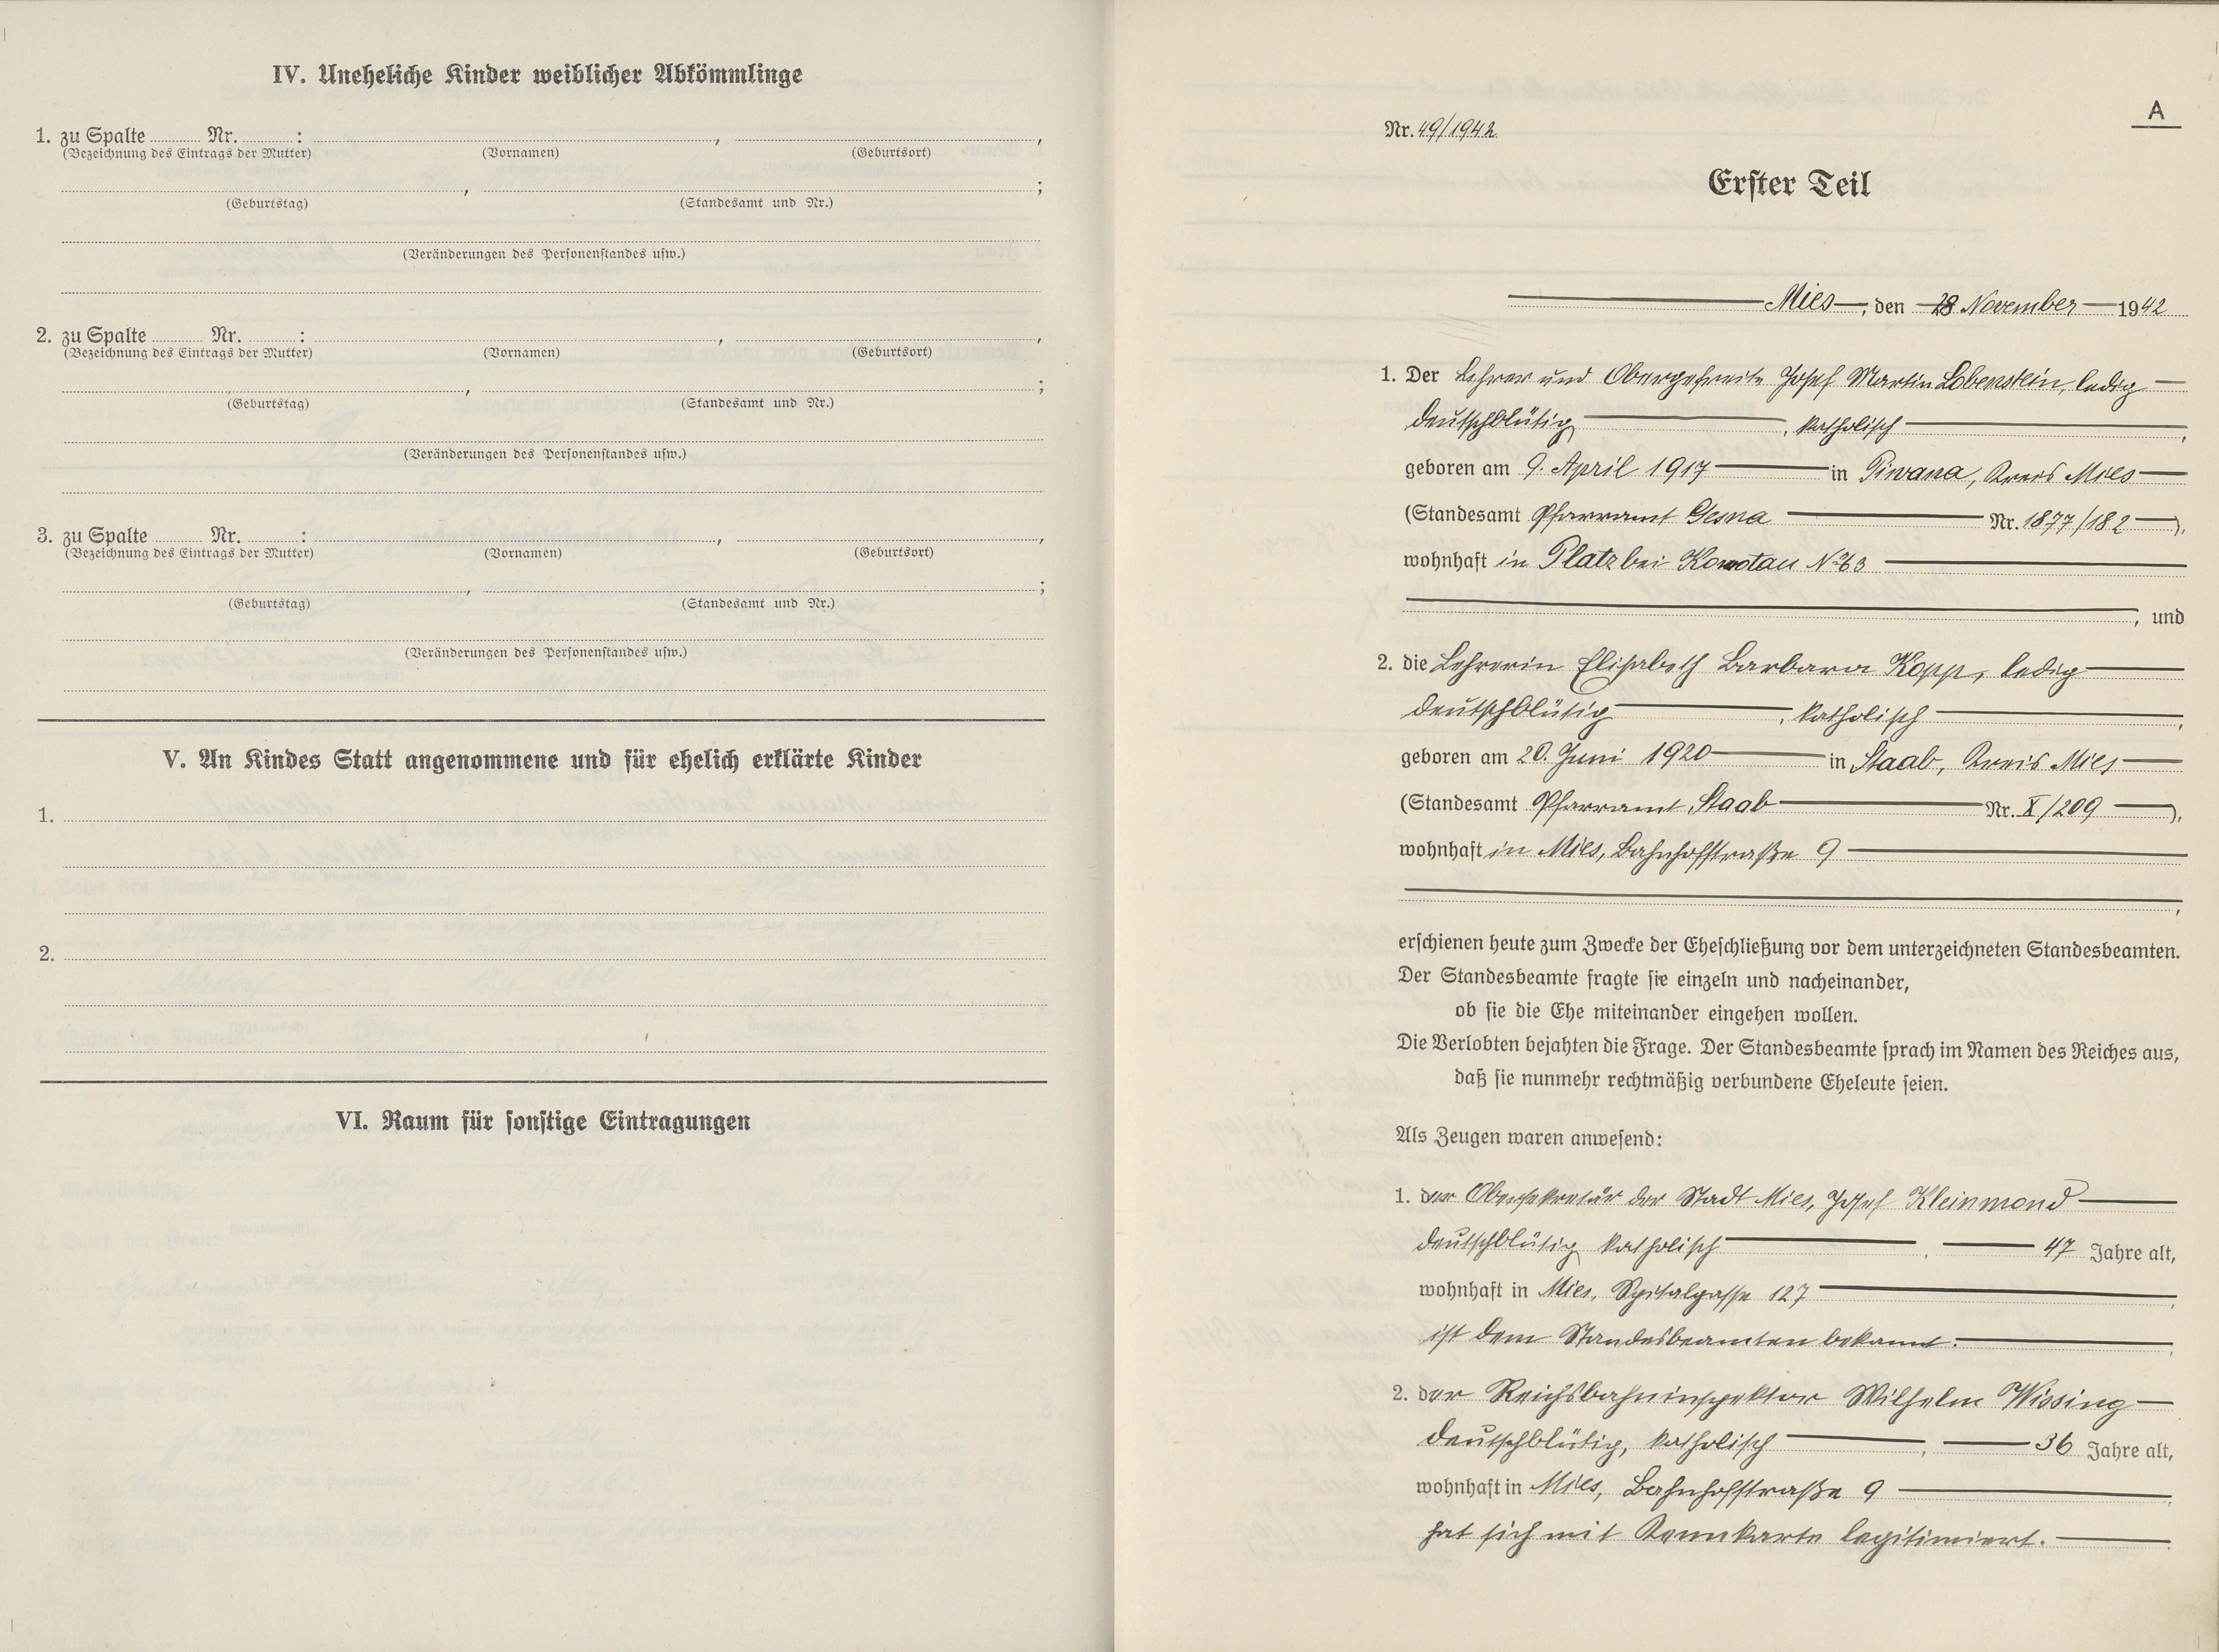 IV. Uneheliche Kinder weiblicher Abkömmlinge
1. zu Spalte ........ Nr. ........ : ........ , ........ ,
(Bezeichnung des Eintrags der Mutter) (Vornamen) (Geburtsort)
........ , ........ ;
(Geburtstag) (Standesamt und Nr.)
(Veränderungen des Personenstandes usw.)
2. zu Spalte ........ Nr. ........ : ........ , ........ ,
(Bezeichnung des Eintrags der Mutter) (Vornamen) (Geburtsort)
........ , ........ ;
(Geburtstag) (Standesamt und Nr.)
(Veränderungen des Personenstandes usw.)
3. zu Spalte ........ Nr. ........ : ........ , ........ ,
(Bezeichnung des Eintrags der Mutter) (Vornamen) (Geburtsort)
........ , ........ ;
(Geburtstag) (Standesamt und Nr.)
(Veränderungen des Personenstandes usw.)
V. An Kindes Statt angenommene und für ehelich erklärte Kinder
1.
2.
VI. Raum für sonstige Eintragungen
A
Nr. 49/1942
Erster Teil
Mies, den 28 November 1942
1. Der Lehrer und Obergefreite Josef Martin Lobenstein, ledig
deutschblütig, katholisch,
geboren am 9. April 1917 in Piwana, Kreis Mies
(Standesamt Pfarramt Gesna Nr. 1877/182),
wohnhaft in Platz bei Komotau No 63
, und
2. die Lehrerin Elisabeth Barbara Kopp, ledig
deutschblütig, katholisch,
geboren am 20. Juni 1920 in Staab, Kreis Mies
(Standesamt Pfarramt Staab Nr. X/209),
wohnhaft in Mies, Bahnhofstraße 9
,
erschienen heute zum Zwecke der Eheschließung vor dem unterzeichneten Standesbeamten.
Der Standesbeamte fragte sie einzeln und nacheinander,
ob sie die Ehe miteinander eingehen wollen.
Die Verlobten bejahten die Frage. Der Standesbeamte sprach im Namen des Reiches aus,
daß sie nunmehr rechtmäßig verbundene Eheleute seien.
Als Zeugen waren anwesend:
1. der Obersekretär der Stadt Mies, Josef Kleinmond
deutschblütig katholisch, 47 Jahre alt,
wohnhaft in Mies, Spitalgasse 127,
ist dem Standesbeamten bekannt.
2. der Reichsbahninspektor Wilhelm Wissing
deutschblütig, katholisch, 36 Jahre alt,
wohnhaft in Mies, Bahnhofstraße 9,
hat sich mit Kennkarte legitimiert.